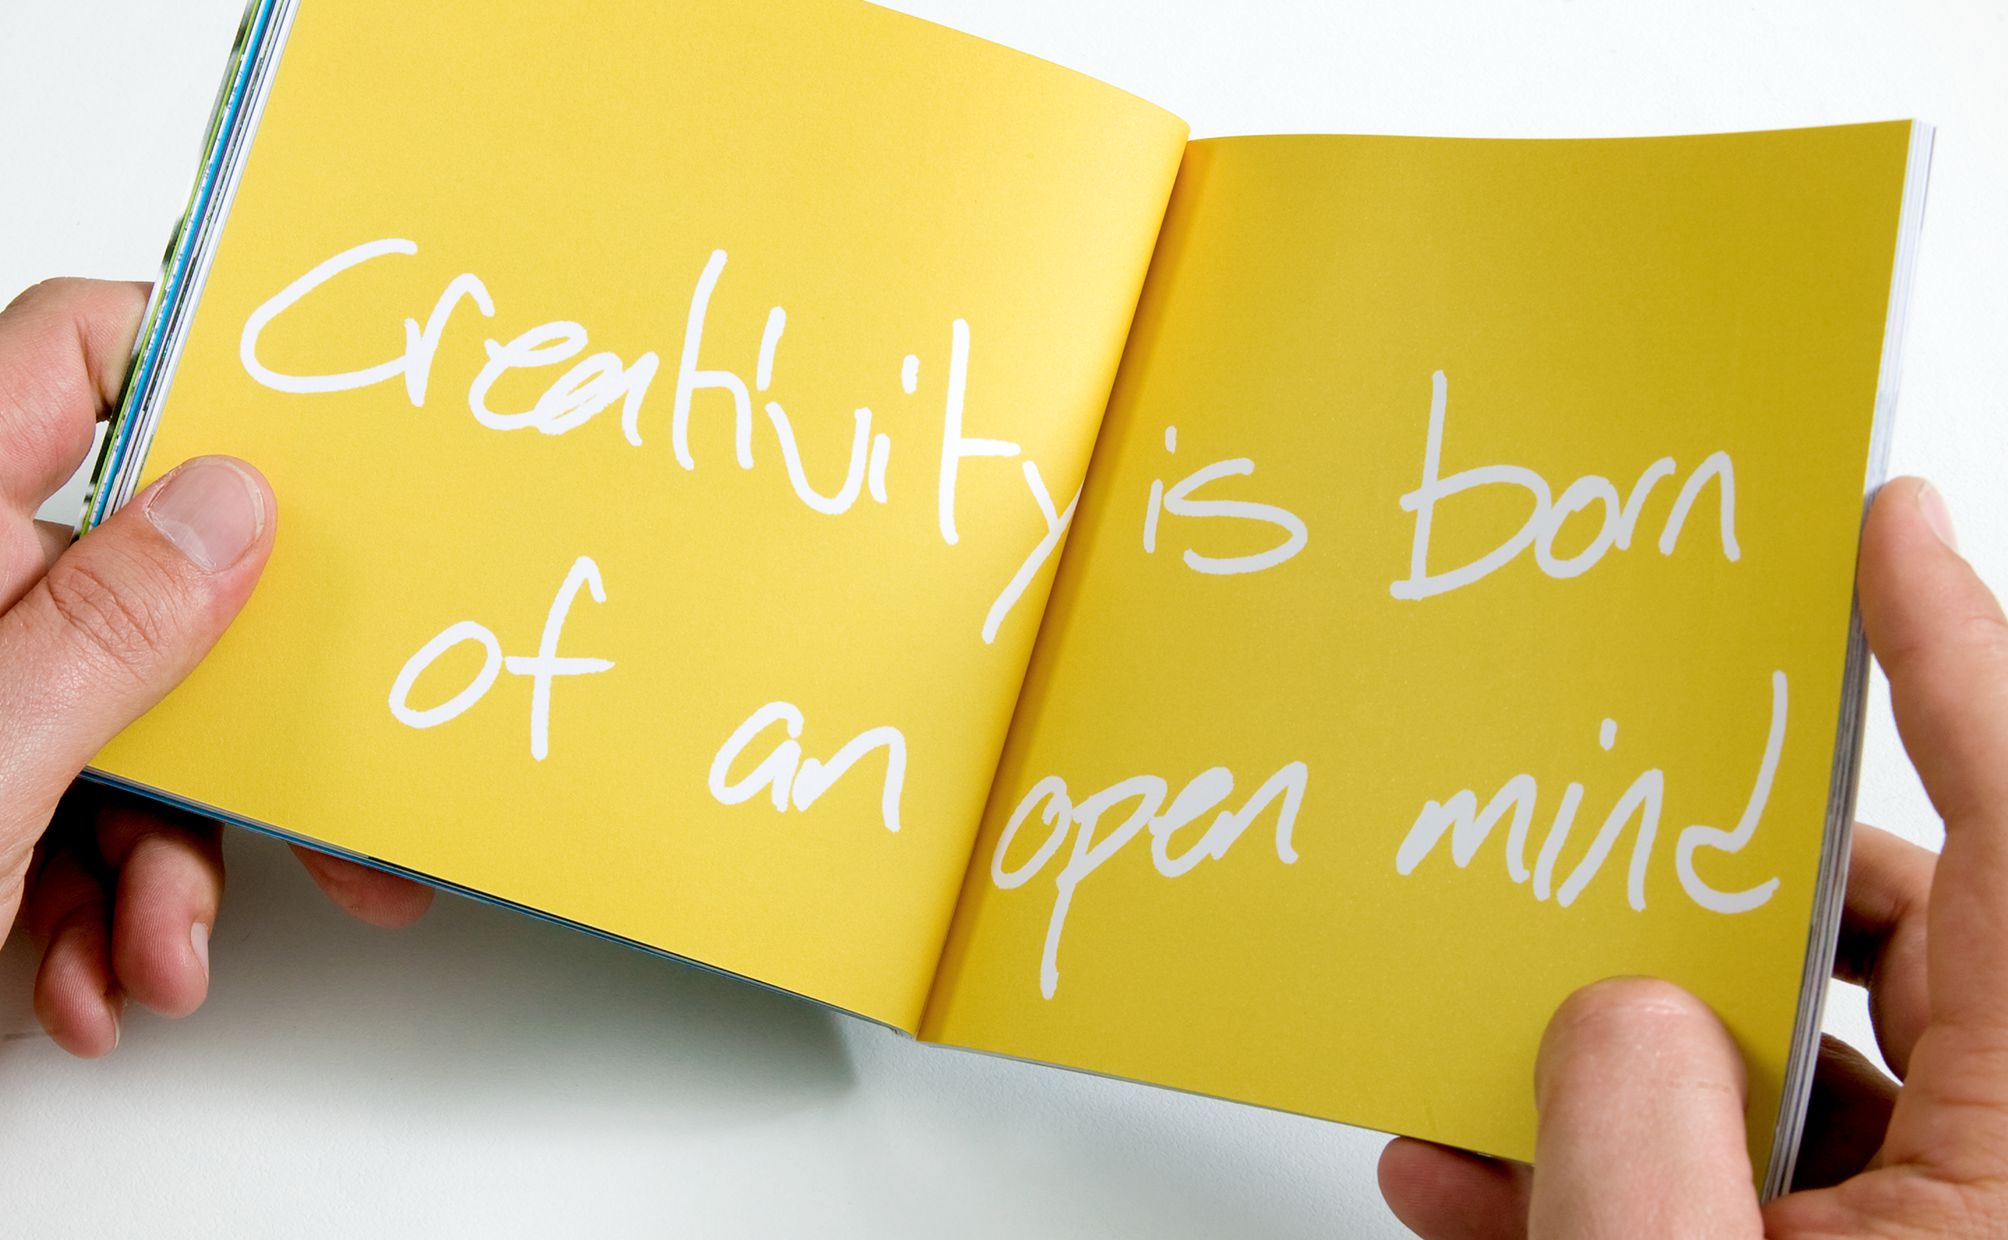 Creativity is born
of an open mind